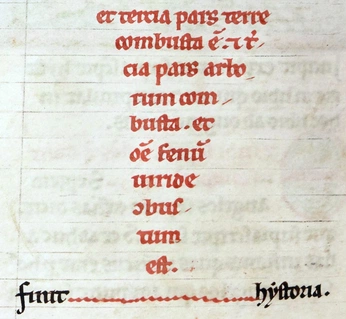 et tercia pars terre
combusta ē. ⁊ t͛
cia pars arbo
rum com
busta. et
oē fenū
uiride
ↄbus
tum
est.
finit hẏstoria.